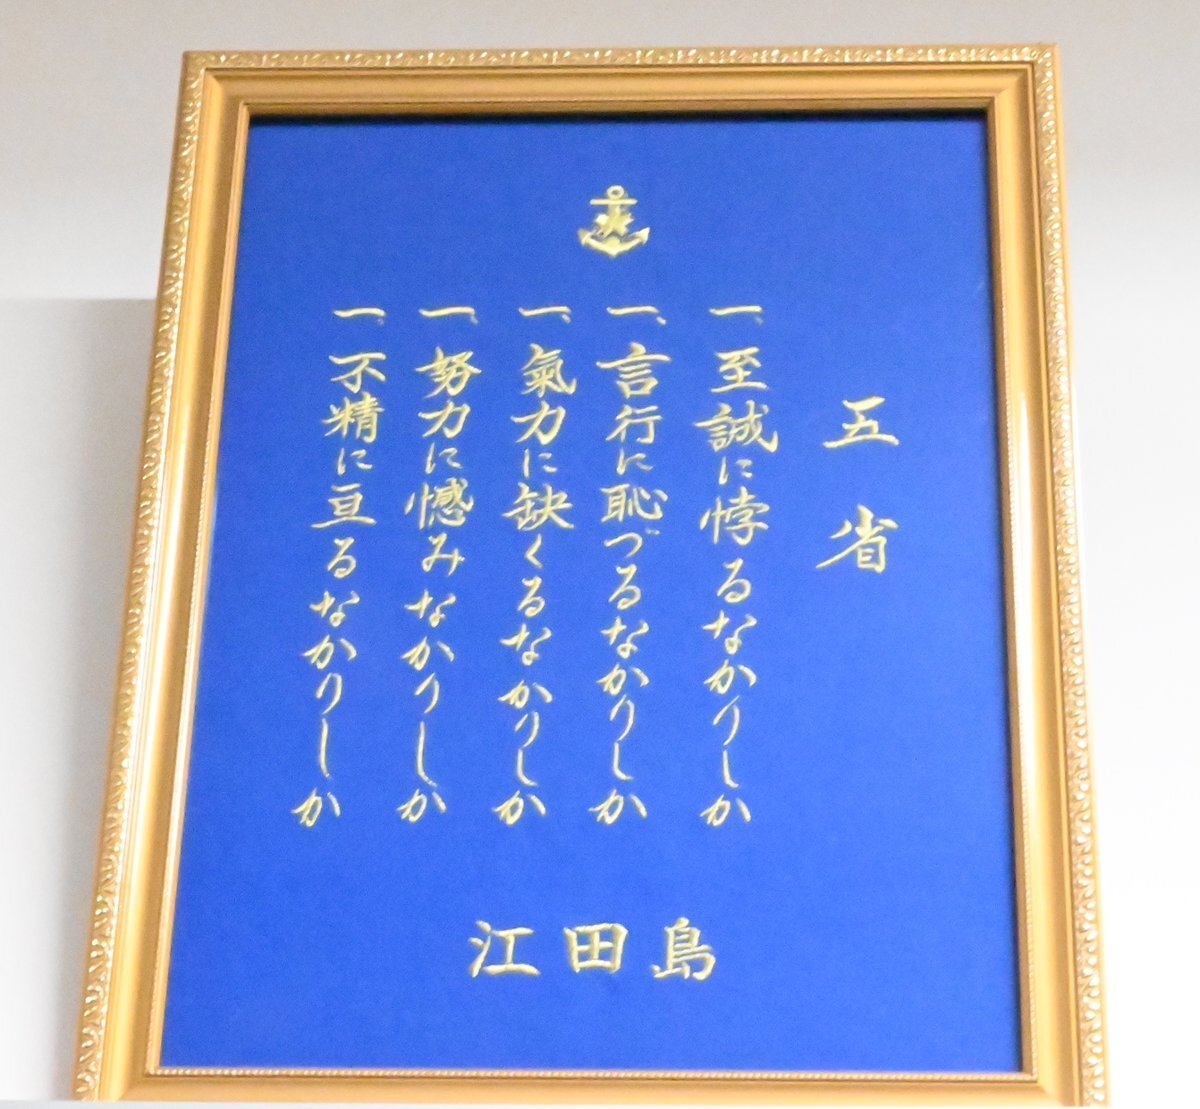 五省
一、至誠に悖るなかりしか
一、言行に恥づるなかりしか
一、氣力に缺くるなかりしか
一、努力に憾みなかりしか
一、不精に亘るなかりしか
江田島